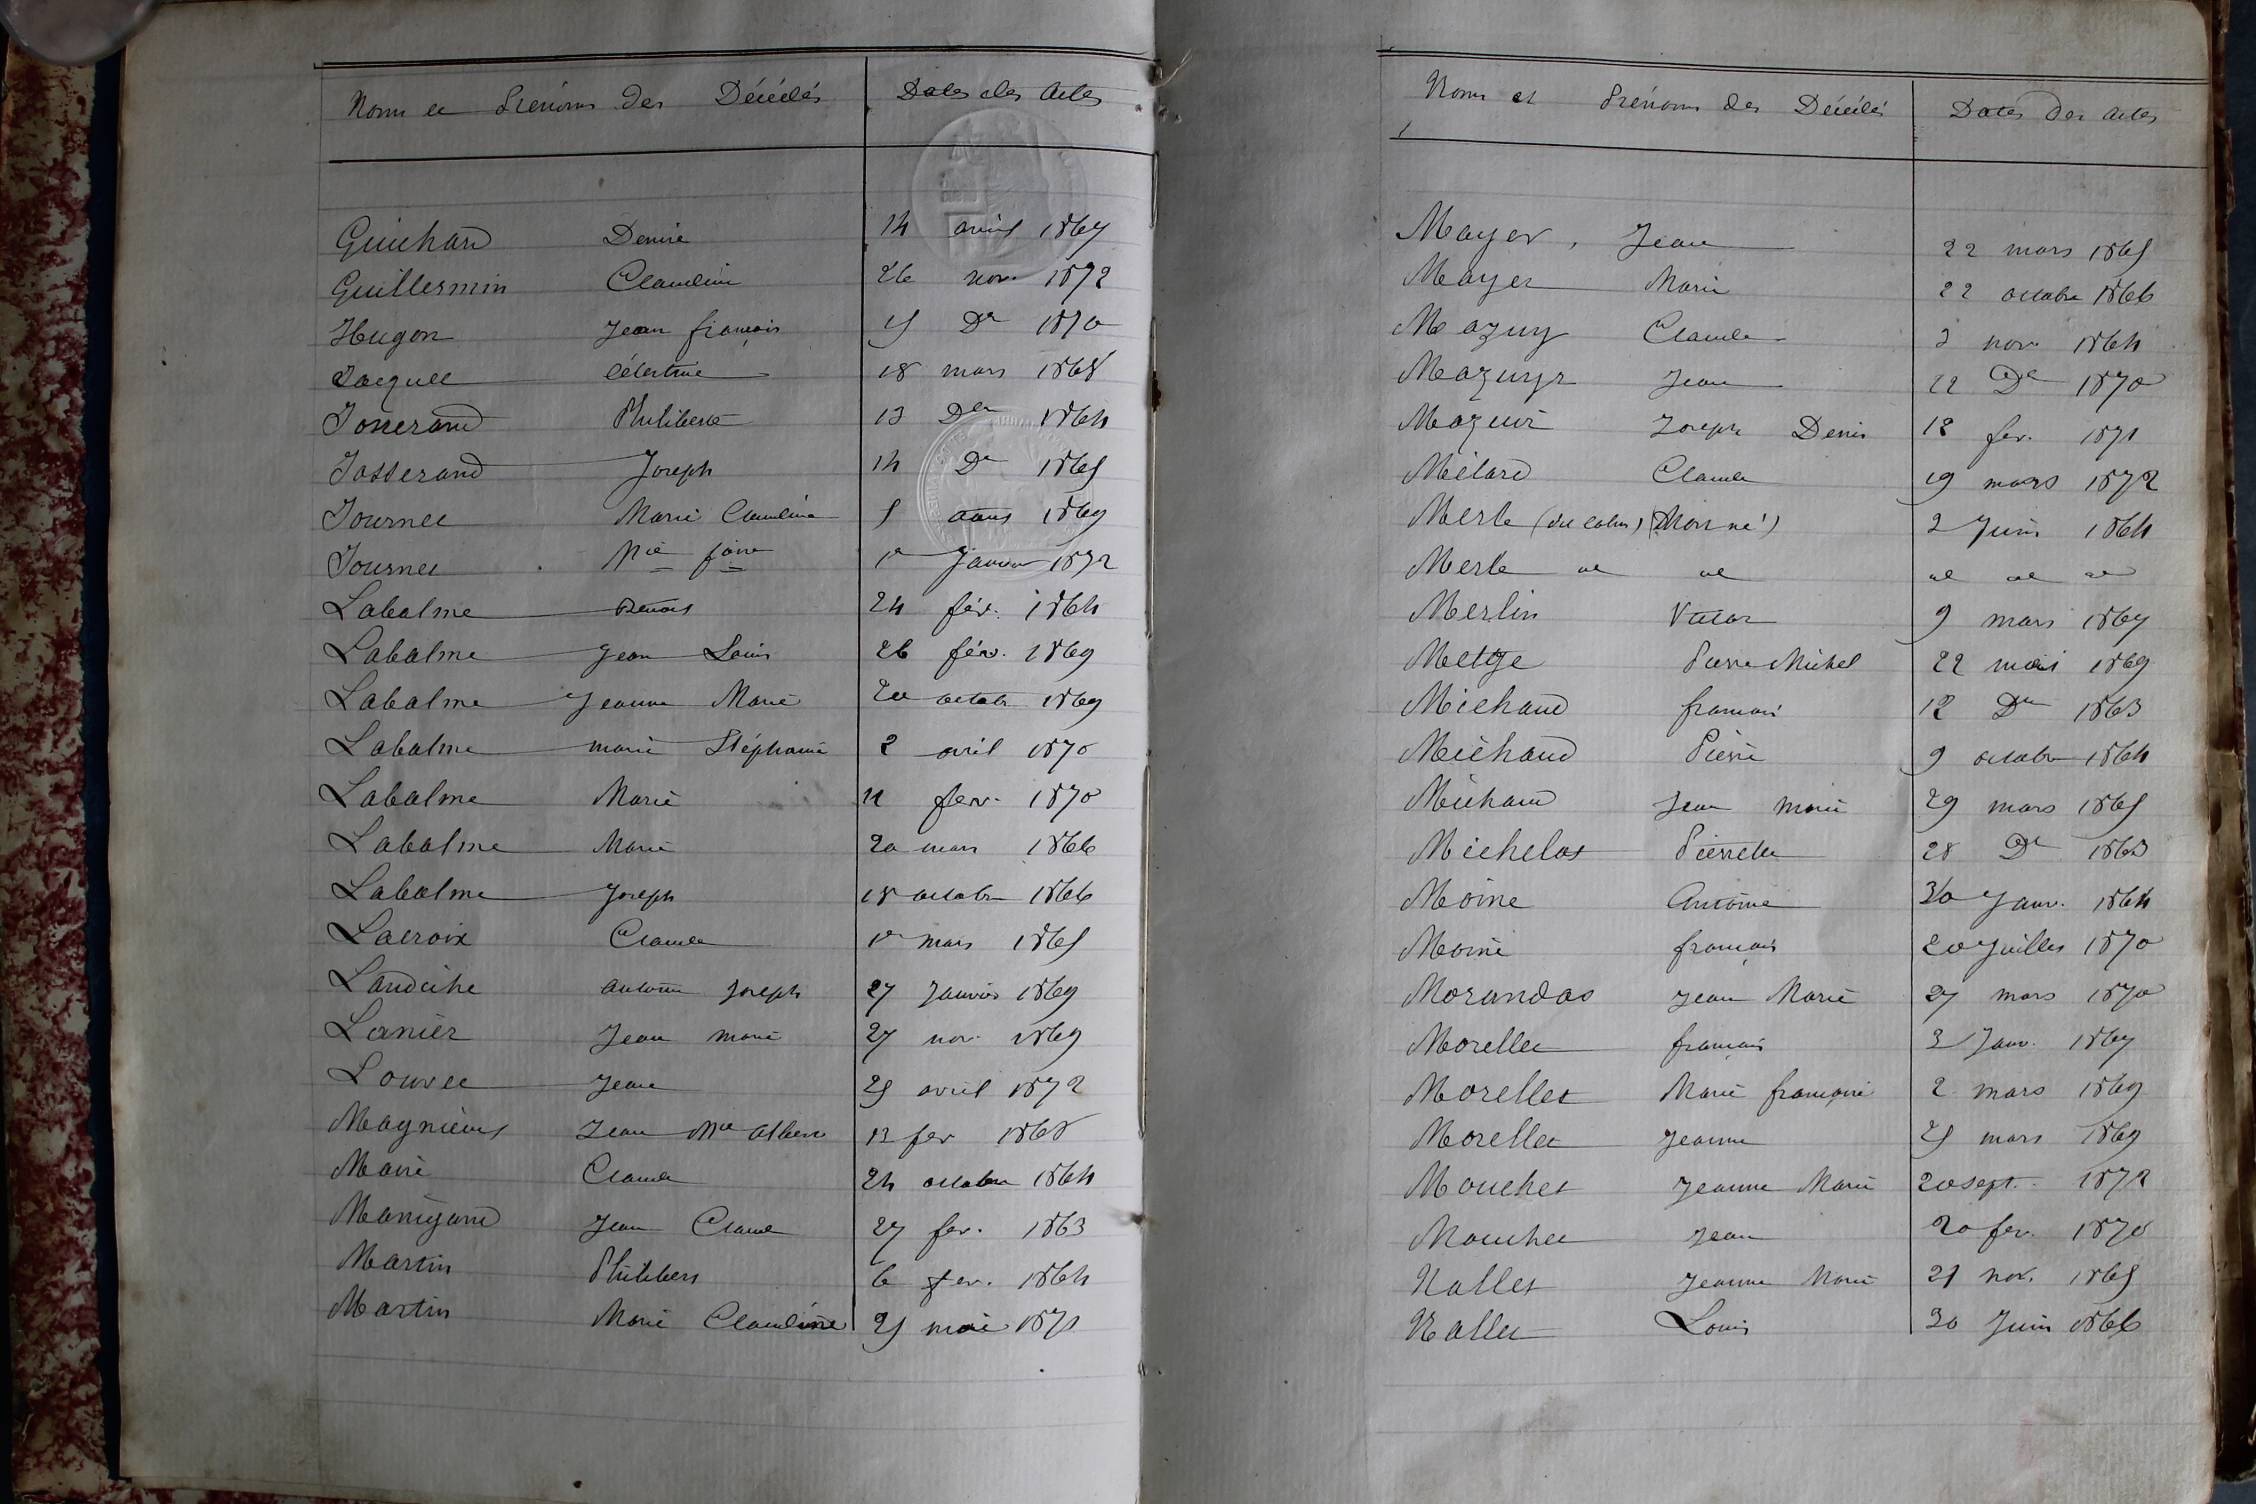 Noms et Prénoms des Décédés Dates des Actes
Guichard Denise 14 avril 1867
Guillermin Claudine 26 nov. 1872
Hugon Jean françois 15 Dre 1870
Jacquet Célestine 18 mars 1868
Josserand Philiberte 13 Dre 1864
Josserand Joseph 14 Dre 1865
Journet Marie Claudine 5 1869
Journet Mie 1er Janvier 1872
Labalme Benoit 24 fév. 1864
Labalme Jean Louis 26 fév. 1869
Labalme Jeanne Marie 20 octobr 1869
Labalme marie Stéphanie 2 avril 1870
Labalme Marie 11 fev. 1870
Labalme Marie 20 mars 1866
Labalme Joseph 18 octobre 1866
Lacroix Claude 1er mars 1865
Antoine Joseph 27 Janvier 1869
Lanier Jean marie 27 nov. 1869
Louvet Jean 25 avril 1872
Magnien Jean Mie Albert 13 fev 1868
Claude 24 octobre 1864
Manigand Jean Claude 27 fev. 1863
Martin Philibert 6 fev. 1864
Martin Marie Claudine 25 mai 1871
Noms et Prénoms des Décédés Dates des Actes
Mayer, Jean 22 mars 1865
Mayer Marie 22 octobre 1866
Mazuy Claude 3 nov 1864
Mazuyr Jean 22 Dre 1870
Mazuir Joseph Denis 12 fev. 1871
Mélard Claude 19 mars 1872
Merle (Mort né) 2 Juin 1864
Merle id id id id id
Merlin Victor 9 mars 1867
Metge Pierre Michel 22 mai 1869
Michaud françois 12 Dre 1863
Michaud Pierre 9 octobre 1864
Michaud Jean marie 29 mars 1865
Michelas Pierrette 28 Dre 1863
Moine Antoine 30 Janv. 1864
Moine françois 20 Juillet 1870
Morandas Jean Marie 27 mars 1870
Morellet françois 3 Janv. 1867
Morellet Marie françoise 2 mars 1869
Morellet Jeanne 25 mars 1869
Mouchet Jeanne Marie 20 sept. 1872
Mouchet Jean 20 fev. 1870
Nallet Jeanne Marie 21 nov. 1865
Nallet Louis 30 Juin 1866